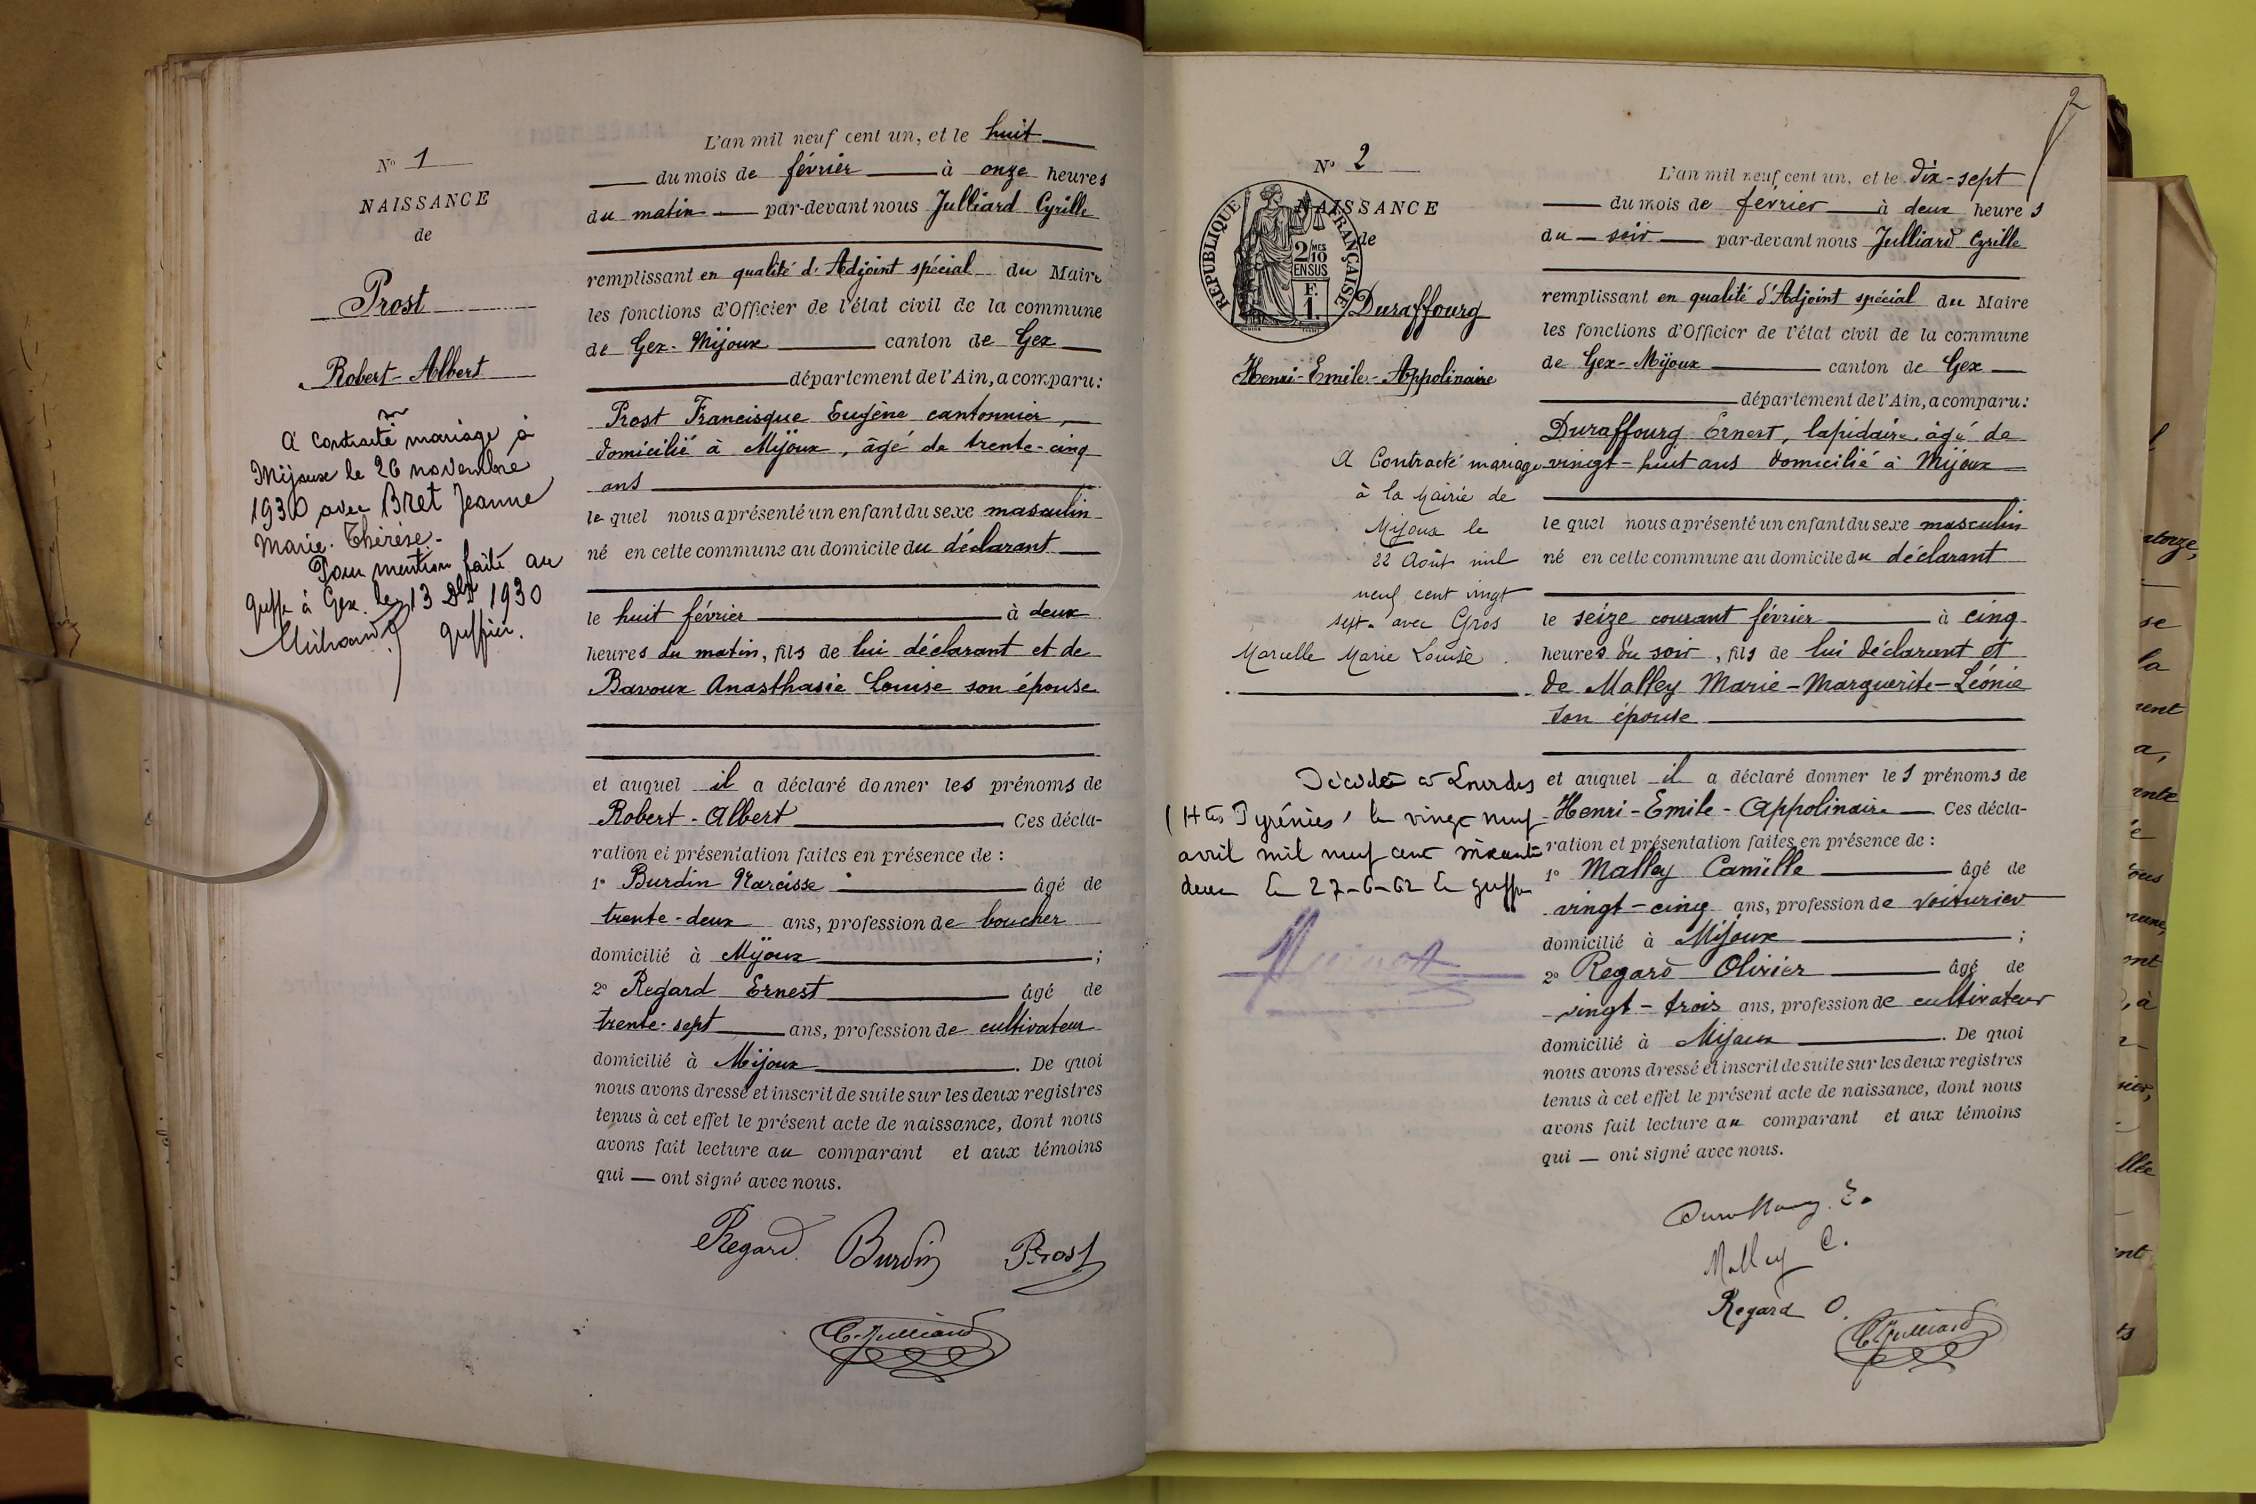 L'an mil neuf cent un, et le huit
N° 1
du mois de février à onze heures
NAISSANCE
du matin par-devant nous Julliard Cyrille
de
remplissant en qualité d'Adjoint spécial du Maire
Prost
les fonctions d'Officier de l'état civil de la commune
de Gex-Mijoux canton de Gex
Robert-Albert
département de l'Ain, a comparu :
Prost Francisque Eugène cantonnier,
domicilié à Mijoux, âgé de trente-cinq
ans
le quel nous a présenté un enfant du sexe masculin
né en cette commune au domicile du déclarant
le huit février à deux
heures du matin, fils de lui déclarant et de
Bavoux Anasthasie Louise son épouse
et auquel il a déclaré donner les prénoms de
Robert-Albert Ces décla-
ration et présentation faites en présence de :
1° Burdin Narcisse âgé de
trente-deux ans, profession de boucher
domicilié à Mijoux ;
2° Regard Ernest âgé de
trente-sept ans, profession de cultivateur
domicilié à Mijoux. De quoi
nous avons dressé et inscrit de suite sur les deux registres
tenus à cet effet le présent acte de naissance, dont nous
avons fait lecture au comparant et aux témoins
qui ont signé avec nous.
Regard. Burdin Prost
C. Julliard
A contracté mariage à
Mijoux le 26 novembre
1930 avec Bret Jeanne
Marie-Thérèse.
Pour mention faite au
greffe à Gex, le 13 Xbre 1930
greffier.
2
N° 2
L'an mil neuf cent un, et le dix-sept
NAISSANCE
du mois de février à deux heures
de
du soir par-devant nous Julliard Cyrille
RÉPUBLIQUE FRANÇAISE
2/10 MES
EN SUS
F.
1.
Duraffourg
remplissant en qualité d'Adjoint spécial du Maire
les fonctions d'Officier de l'état civil de la commune
Henri-Emile-Appolinaire
de Gex-Mijoux canton de Gex
département de l'Ain, a comparu :
Duraffourg Ernest, lapidaire, âgé de
vingt-huit ans domicilié à Mijoux
le quel nous a présenté un enfant du sexe masculin
né en cette commune au domicile du déclarant
le seize courant février à cinq
heures du soir, fils de lui déclarant et
de Malley Marie-Marguerite-Léonie
son épouse
et auquel il a déclaré donner les prénoms de
Henri-Emile-Appolinaire Ces décla-
ration et présentation faites en présence de :
1° Malley Camille âgé de
vingt-cinq ans, profession de voiturier
domicilié à Mijoux ;
2° Regard Olivier âgé de
vingt-trois ans, profession de cultivateur
domicilié à Mijoux. De quoi
nous avons dressé et inscrit de suite sur les deux registres
tenus à cet effet le présent acte de naissance, dont nous
avons fait lecture au comparant et aux témoins
qui ont signé avec nous.
Duraffourg. E.
Malley C.
Regard O.
C. Julliard
A Contracté mariage
à la Mairie de
Mijoux le
22 Août mil
neuf cent vingt
sept. avec Gros
Marcelle Marie Louise.
Décédé à Lourdes
(Htes Pyrénées) le vingt neuf
avril mil neuf cent soixante
deux le 27-6-62 le greffier